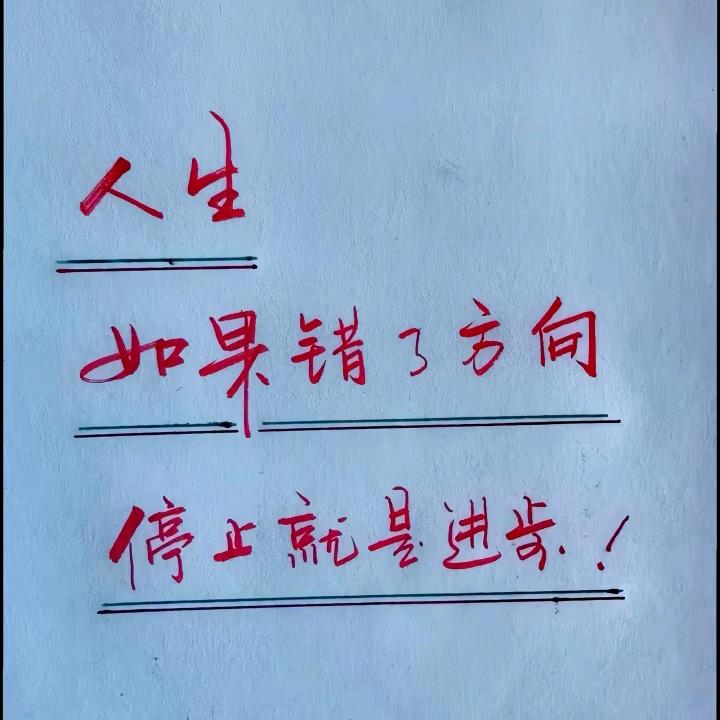 人生
如果错了方向
停止就是进步！